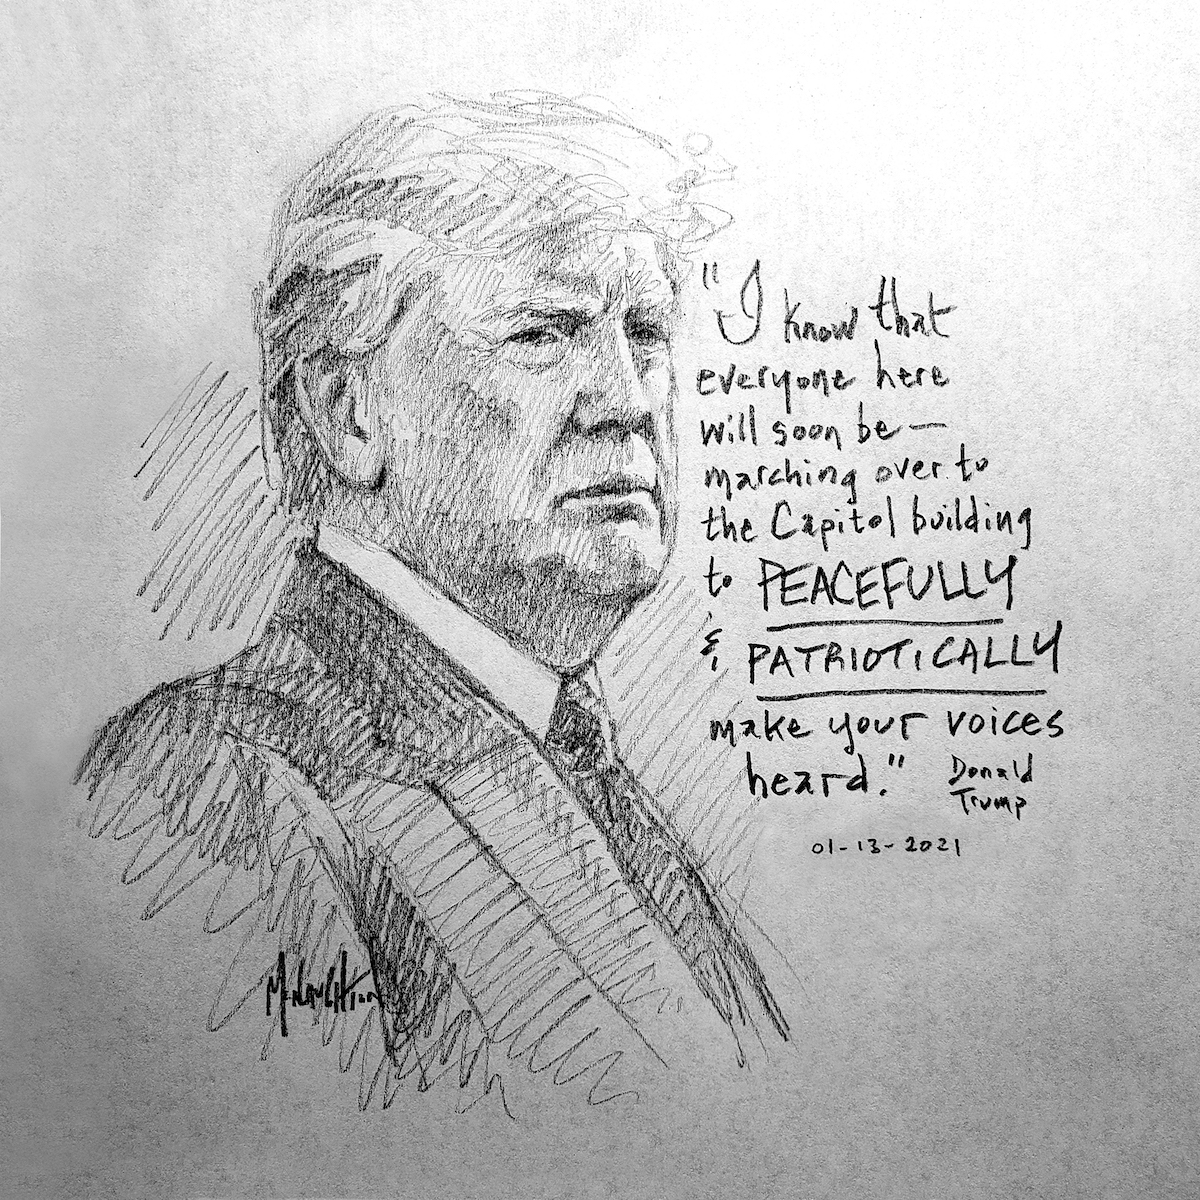 "I know that
everyone here
will soon be —
marching over to
the Capitol building
to PEACEFULLY
& PATRIOTICALLY
make your voices
heard."
Donald
Trump
01-13-2021
McNAUGHTON